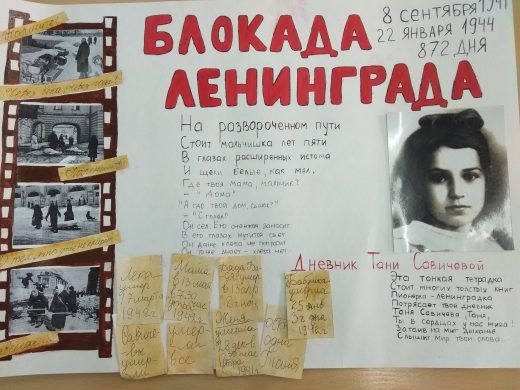 БЛОКАДА
ЛЕНИНГРАДА
8 СЕНТЯБРЯ 1941
22 ЯНВАРЯ 1944
872 ДНЯ
На развороченном пути
Стоит мальчишка лет пяти
В глазах расширенных истома
И щёки белые, как мел.
Где твоя мама, мальчик?
- "Дома"
"А где твой дом, сынок?"
- "Сгорел"
Он сел. Его снежком заносит
В его глазах мутится свет
Он даже хлеба не попросит
Он тоже знает - хлеба нет
Дневник Тани Савичевой
Эта тонкая тетрадка
Стоит многих толстых книг
Пионерка - ленинградка
Потрясает твой дневник
Таня Савичева Таня,
Ты в сердцах у нас жива!
Затаив на миг дыханье
Слышит мир твои слова...
Лека
умер
17 марта
1942г
Миша
13 мая
Дядя Ва
ся умер
Бабушка
умерла
25 янв
1942г
Савиче
вы
умер
ли
умер-
ли
все
Женя
умерла
28 дек
1941г
Оста
одна
Таня